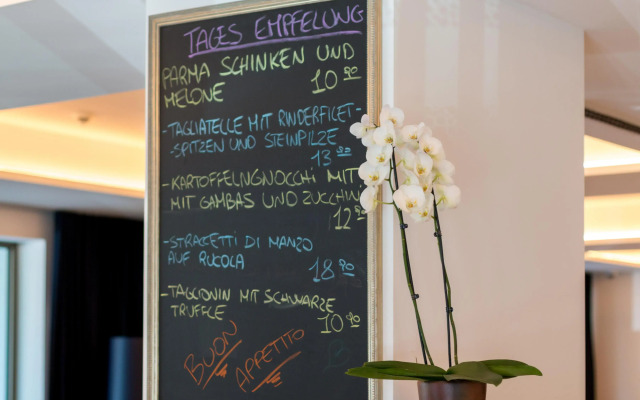 TAGES EMPFELUNG
PARMA SCHINKEN UND
MELONE 10.90
-TAGLIATELLE MIT RINDERFILET-
-SPITZEN UND STEINPILZE
13.90
-KARTOFFELNGNOCCHI MIT
MIT GAMBAS UND ZUCCHIN
12.90
-STRACCETTI DI MANZO
AUF RUCOLA 18.90
-TAGLIONIN MIT SCHWARZE
TRUFFLE 10.90
BUON
APPETITO